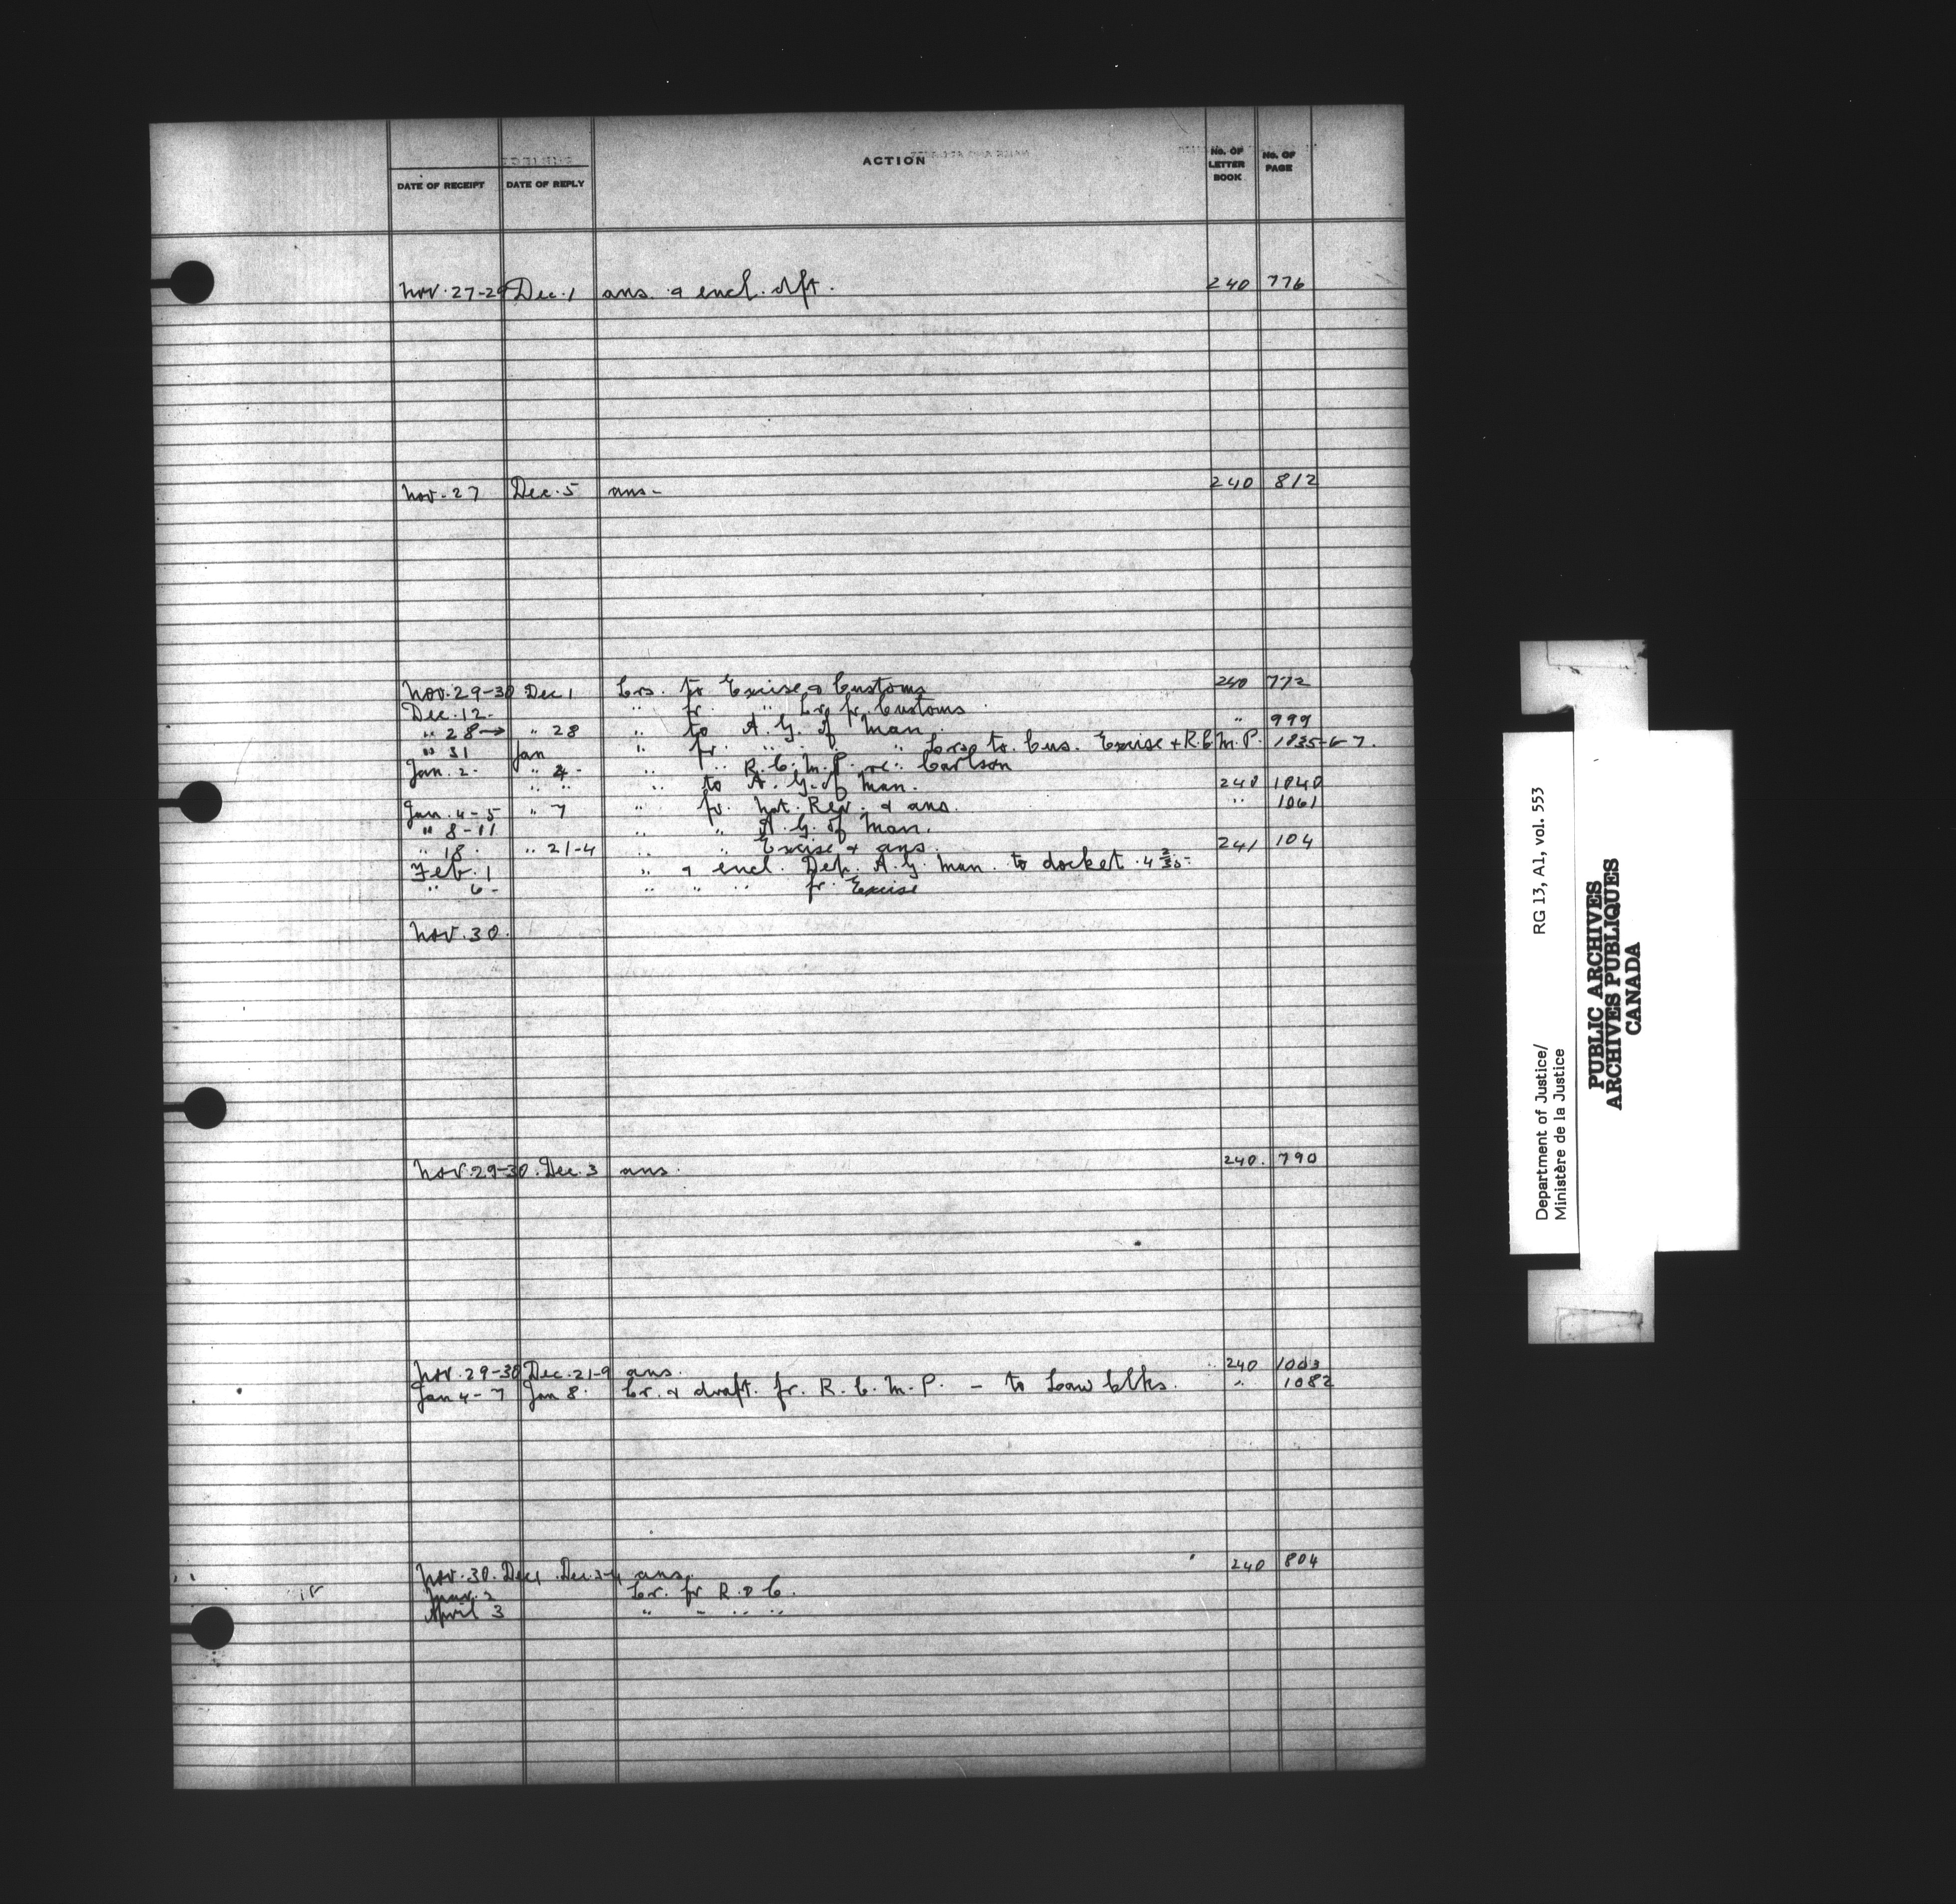 ACTION
No. OF LETTER BOOK
No. OF PAGE
DATE OF RECEIPT DATE OF REPLY
Nov. 27-29 Dec. 1 ans. & encl. dft. 240 776
Nov. 27 Dec. 5 ans- 240 812
Nov. 29-30 Dec 1 Lrs. to Excise & Customs 240 772
Dec. 12. " fr. " Lr. fr. Customs
" 28→ " 28 " to A. G. of Man. " 999
" 31 Jan " fr. " " " Lrs. to Cus. Excise + R.C.M.P. 1035-6-7.
Jan. 2. " 4- " " R.C.M.P. re: Carlson
" " " to A. G. of Man. 240 1040
Jan. 4-5 " 7 " fr. Nat. Rev. & ans. " 1061
" 8-11 " " A. G. of Man.
" 18. " 21-4 " " Excise & ans. 241 104
Feb. 1 " & encl. Dep. A. G. Man. to docket.
" 6- " " " fr. Excise
Nov. 30.
Nov. 29-30. Dec. 3 ans. 240. 790
Nov. 29-30 Dec. 21-9 ans. 240 1003
Jan 4-7 Jan 8. Lr. & draft. fr. R. C. M. P. - to Law Clks. " 1082
Nov. 30. Dec 1 Dec. 3-4 ans. 240 804
Mar. 2 Lr. fr R. & C.
April 3 " " " "
Department of Justice/
Ministère de la Justice
RG 13, A1, vol. 553
PUBLIC ARCHIVES
ARCHIVES PUBLIQUES
CANADA